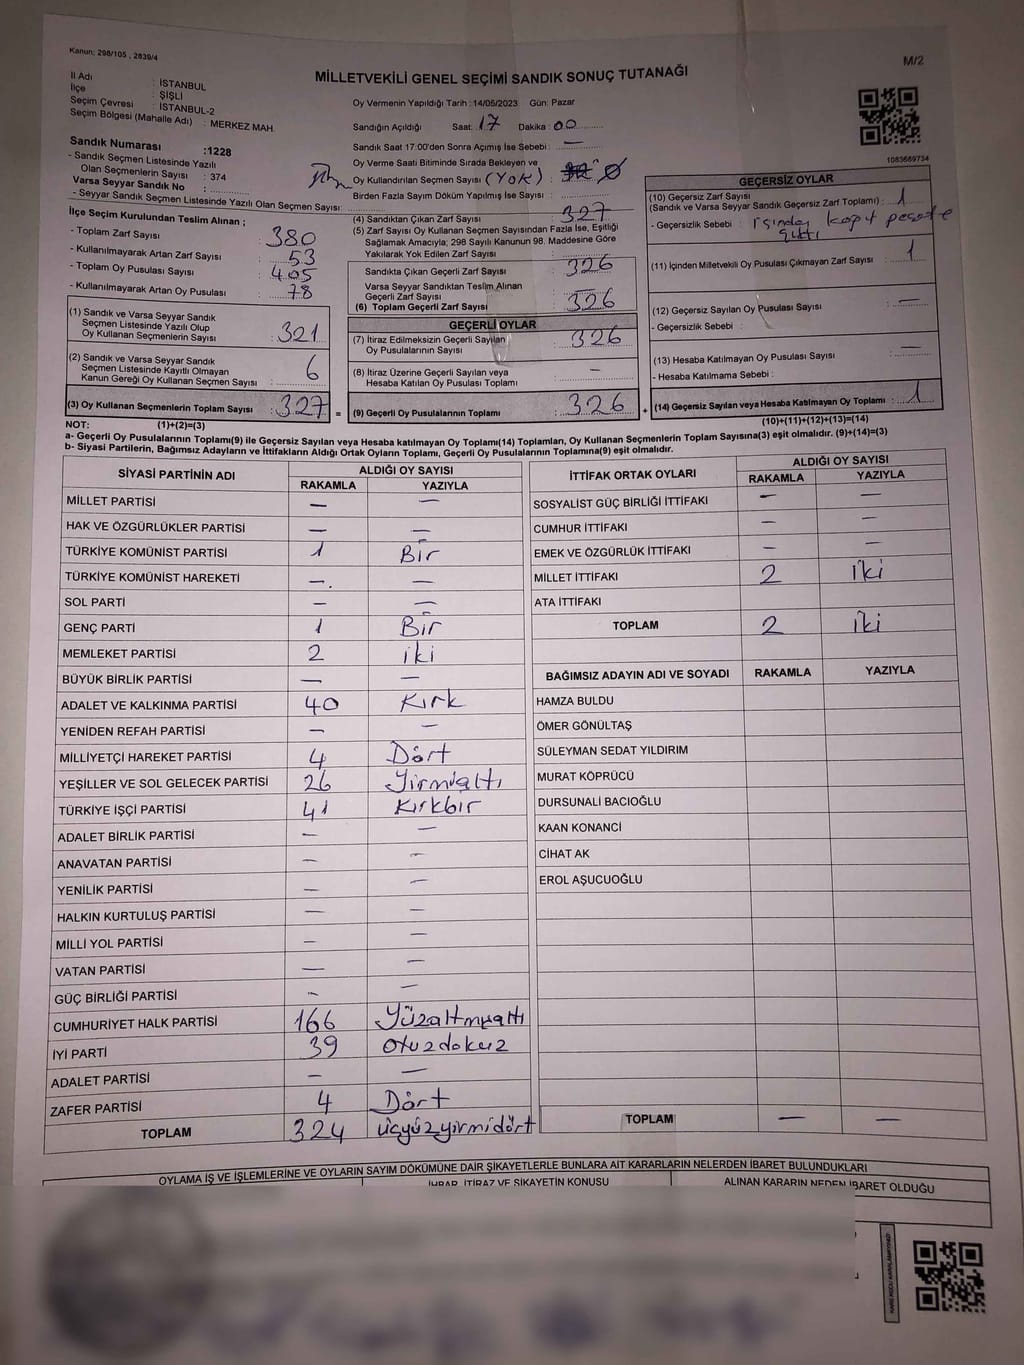 Kanun: 298/105 , 2839/4
M/2
MİLLETVEKİLİ GENEL SEÇİMİ SANDIK SONUÇ TUTANAĞI
İl Adı : İSTANBUL
İlçe : ŞİŞLİ
Seçim Çevresi : İSTANBUL-2
Seçim Bölgesi (Mahalle Adı) : MERKEZ MAH.
Sandık Numarası :1228
- Sandık Seçmen Listesinde Yazılı
Olan Seçmenlerin Sayısı : 374
Varsa Seyyar Sandık No :
- Seyyar Sandık Seçmen Listesinde Yazılı Olan Seçmen Sayısı:
Oy Vermenin Yapıldığı Tarih : 14/05/2023 Gün: Pazar
Sandığın Açıldığı Saat: 17 Dakika : 00
Sandık Saat 17:00'den Sonra Açımış İse Sebebi : —
Oy Verme Saati Bitiminde Sırada Bekleyen ve
Oy Kullandırılan Seçmen Sayısı (YOK) :
Birden Fazla Sayım Döküm Yapılmış İse Sayısı :
1083669734
İlçe Seçim Kurulundan Teslim Alınan ;
- Toplam Zarf Sayısı : 380
- Kullanılmayarak Artan Zarf Sayısı : 53
- Toplam Oy Pusulası Sayısı : 405
- Kullanılmayarak Artan Oy Pusulası : 78
(1) Sandık ve Varsa Seyyar Sandık
Seçmen Listesinde Yazılı Olup
Oy Kullanan Seçmenlerin Sayısı : 321
(2) Sandık ve Varsa Seyyar Sandık
Seçmen Listesinde Kayıtlı Olmayan
Kanun Gereği Oy Kullanan Seçmen Sayısı : 6
(3) Oy Kullanan Seçmenlerin Toplam Sayısı : 327 =
(1)+(2)=(3)
(4) Sandıktan Çıkan Zarf Sayısı : 327
(5) Zarf Sayısı Oy Kullanan Seçmen Sayısından Fazla İse, Eşitliği
Sağlamak Amacıyla; 298 Sayılı Kanunun 98. Maddesine Göre
Yakılarak Yok Edilen Zarf Sayısı :
Sandıkta Çıkan Geçerli Zarf Sayısı : 326
Varsa Seyyar Sandıktan Teslim Alınan
Geçerli Zarf Sayısı :
(6) Toplam Geçerli Zarf Sayısı : 326
GEÇERLİ OYLAR
(7) İtiraz Edilmeksizin Geçerli Sayılan
Oy Pusulalarının Sayısı : 326
(8) İtiraz Üzerine Geçerli Sayılan veya
Hesaba Katılan Oy Pusulası Toplamı : —
(9) Geçerli Oy Pusulalarının Toplamı : 326 +
GEÇERSİZ OYLAR
(10) Geçersiz Zarf Sayısı
(Sandık ve Varsa Seyyar Sandık Geçersiz Zarf Toplamı) : 1
- Geçersizlik Sebebi :
(11) İçinden Milletvekili Oy Pusulası Çıkmayan Zarf Sayısı : 1
(12) Geçersiz Sayılan Oy Pusulası Sayısı : —
- Geçersizlik Sebebi :
(13) Hesaba Katılmayan Oy Pusulası Sayısı : —
- Hesaba Katılmama Sebebi :
(14) Geçersiz Sayılan veya Hesaba Katılmayan Oy Toplamı : 1
(10)+(11)+(12)+(13)=(14)
NOT:
a- Geçerli Oy Pusulalarının Toplamı(9) ile Geçersiz Sayılan veya Hesaba katılmayan Oy Toplamı(14) Toplamları, Oy Kullanan Seçmenlerin Toplam Sayısına(3) eşit olmalıdır. (9)+(14)=(3)
b- Siyasi Partilerin, Bağımsız Adayların ve İttifakların Aldığı Ortak Oyların Toplamı, Geçerli Oy Pusulalarının Toplamına(9) eşit olmalıdır.
SİYASİ PARTİNİN ADI ALDIĞI OY SAYISI
RAKAMLA YAZIYLA
MİLLET PARTİSİ — —
HAK VE ÖZGÜRLÜKLER PARTİSİ — —
TÜRKİYE KOMÜNİST PARTİSİ 1 Bir
TÜRKİYE KOMÜNİST HAREKETİ — —
SOL PARTİ — —
GENÇ PARTİ 1 Bir
MEMLEKET PARTİSİ 2 iki
BÜYÜK BİRLİK PARTİSİ — —
ADALET VE KALKINMA PARTİSİ 40 Kırk
YENİDEN REFAH PARTİSİ — —
MİLLİYETÇİ HAREKET PARTİSİ 4 Dört
YEŞİLLER VE SOL GELECEK PARTİSİ 26 Yirmialtı
TÜRKİYE İŞÇİ PARTİSİ 41 Kırkbir
ADALET BİRLİK PARTİSİ — —
ANAVATAN PARTİSİ — —
YENİLİK PARTİSİ — —
HALKIN KURTULUŞ PARTİSİ — —
MİLLİ YOL PARTİSİ — —
VATAN PARTİSİ — —
GÜÇ BİRLİĞİ PARTİSİ — —
CUMHURİYET HALK PARTİSİ 166 Yüzaltmışaltı
İYİ PARTİ 39 Otuzdokuz
ADALET PARTİSİ — —
ZAFER PARTİSİ 4 Dört
TOPLAM 324 üçyüzyirmidört
İTTİFAK ORTAK OYLARI ALDIĞI OY SAYISI
RAKAMLA YAZIYLA
SOSYALİST GÜÇ BİRLİĞİ İTTİFAKI — —
CUMHUR İTTİFAKI — —
EMEK VE ÖZGÜRLÜK İTTİFAKI — —
MİLLET İTTİFAKI 2 iki
ATA İTTİFAKI
TOPLAM 2 iki
BAĞIMSIZ ADAYIN ADI VE SOYADI RAKAMLA YAZIYLA
HAMZA BULDU
ÖMER GÖNÜLTAŞ
SÜLEYMAN SEDAT YILDIRIM
MURAT KÖPRÜCÜ
DURSUNALİ BACIOĞLU
KAAN KONANCİ
CİHAT AK
EROL AŞUCUOĞLU
TOPLAM — —
OYLAMA İŞ VE İŞLEMLERİNE VE OYLARIN SAYIM DÖKÜMÜNE DAİR ŞİKAYETLERLE BUNLARA AİT KARARLARIN NELERDEN İBARET BULUNDUKLARI
İHBAR, İTİRAZ VE ŞİKAYETİN KONUSU ALINAN KARARIN NEDEN İBARET OLDUĞU